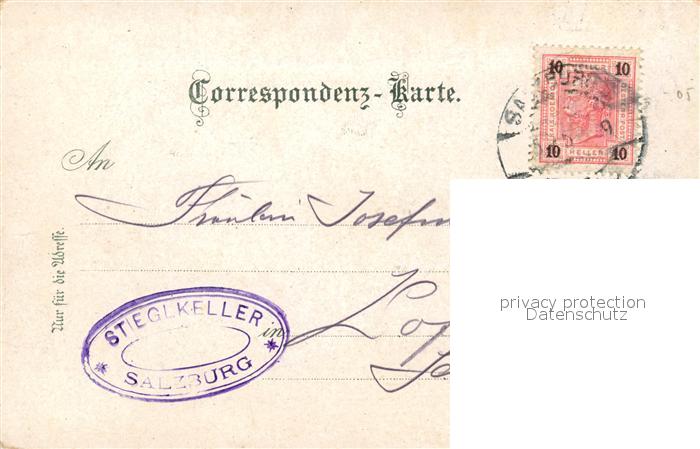 Correspondenz-Karte.
10 10
10 10
HELLER
SALZBURG
05
An
Fräulein
in
Nur für die Adresse.
STIEGLKELLER
SALZBURG
privacy protection
Datenschutz